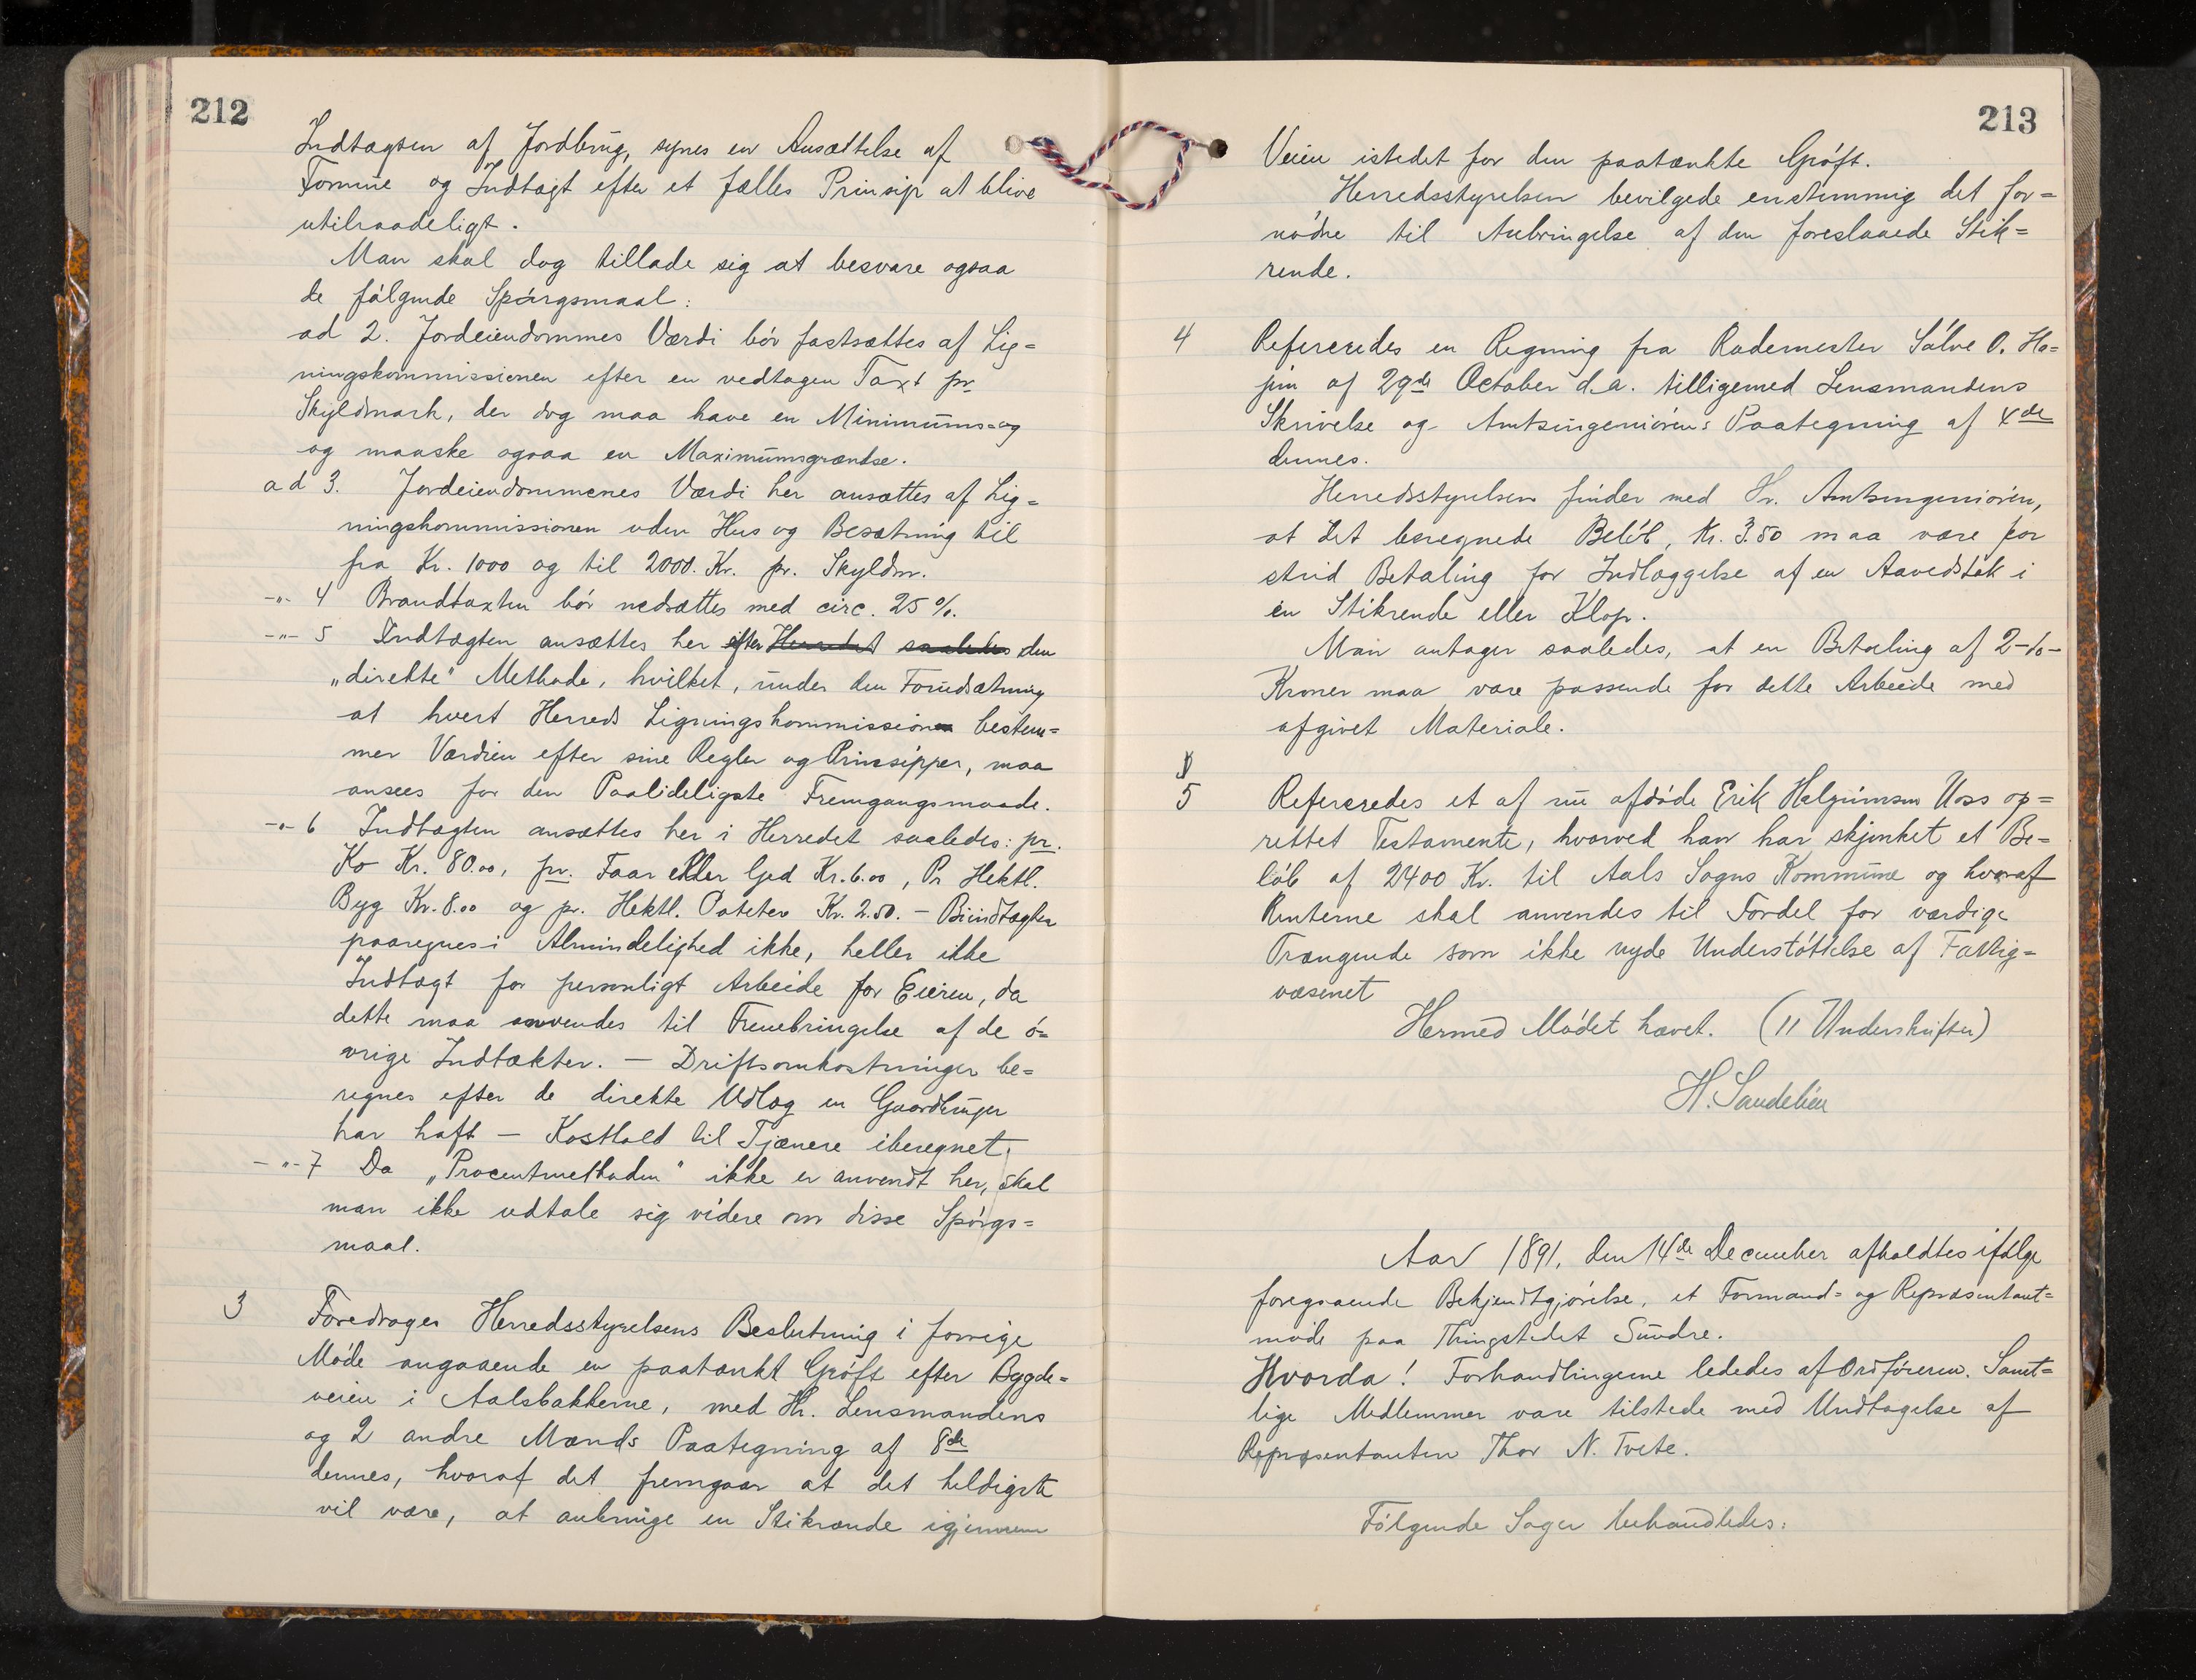 212
Indtægten af Jordbrug, synes en Ansættelse af
Formue og Indtægt efter et fælles Prinsip at blive
utilraadeligt.
Man skal dog tillade sig at besvare ogsaa
de følgende Spørgsmaal:
ad 2. Jordeiendommes Værdi bør fastsættes af Lig=
ningskommissionen efter en vedtagen Taxt pr
Skyldmark, der dog maa have en Minimums=og
og maaske ogsaa en Maximumsgrændse.
ad 3. Jordeiendommenes Værdi her ansættes af Lig=
ningskommissionen uden Hus og Besætning til
fra Kr. 1000 og til 2000. Kr. pr. Skyldm.
-"- 4 Brandtaxten bør nedsættes med circ. 25 %.
-"- 5 Indtægten ansættes her efter Herredet saaledes den
„direkte" Methode, hvilket, under den Forudsætning
at hvert Herreds Ligningskommission bestem=
mer Værdien efter sine Regler og Prinsipper, maa
ansees for den Paalideligste Fremgangsmaade.
-"- 6 Indtægten ansættes her i Herredet saaledes: pr.
Ko Kr. 80.00, pr. Faar eller Gjed Kr. 6.00, Pr Hektl.
Byg Kr. 8.00 og pr. Hektl. Poteter Kr. 2.50. — Biindtægter
paaregnes i Almindelighed ikke, heller ikke
Indtægt for personligt Arbeide for Eieren, da
dette maa anvendes til Frembringelse af de ø=
vrige Indtækter. — Driftsomkostninger be=
regnes efter de direkte Udlæg en Gaardbruger
har haft — Kosthold til Tjænere iberegnet.
-"- 7 Da „Procentmethoden" ikke er anvendt her, skal
man ikke udtale sig videre om disse Spørgs=
maal.
3 Foredrages Herredsstyrelsens Beslutning i forrige
Møde angaaende en paatænkt Grøft efter Bygde=
veien i Aalsbakkerne, med Hr. Lensmandens
og 2 andre Mænds Paategning af 8de
dennes, hvoraf det fremgaar at det heldigste
vil være, at anbringe en Stikrænde igjennem
213
Veien istedet for den paatænkte Grøft.
Herredsstyrelsen bevilgede enstemmig det for=
nødne til Anbringelse af den foreslaaede Stik=
rende.
4 Refereredes en Regning fra Rodemester Sålve O. Ho=
jim af 29de October d.a. tilligemed Lensmandens
Skrivelse og Amtsingeniørens Paategning af 4de
dennes.
Herredsstyrelsen finder med Hr. Amtsingeniøren,
at det beregnede Beløb, Kr. 3.50 maa være for
strid Betaling for Indlæggelse af en Aavedstok i
en Stikrende eller Klop.
Man antager saaledes, at en Betaling af 2-to-
Kroner maa være passende for dette Arbeide med
afgivet Materiale.
5 Refereredes et af nu afdøde Erik Halgrimsen Uoss op=
rettet Testamente, hvorved han har skjenket et Be=
løb af 2400 Kr. til Aals Sogns Kommune og hvoraf
Renterne skal anvendes til Fordel for værdige
Trængende som ikke nyde Understøttelse af Fattig=
væsenet
Hermed Mødet hævet. (11 Underskrifter)
H. Sandelien
Aar 1891, den 14de December afholdtes ifølge
foregaaende Bekjendtgjørelse, et Formand= og Repræsentant=
møde paa Thingstedet Sundre.
Hvorda! Forhandlingerne lededes af Ordføreren. Samt=
lige Medlemmer vare tilstede med Undtagelse af
Repræsentanten Thor N. Tveite.
Følgende Sager behandledes: